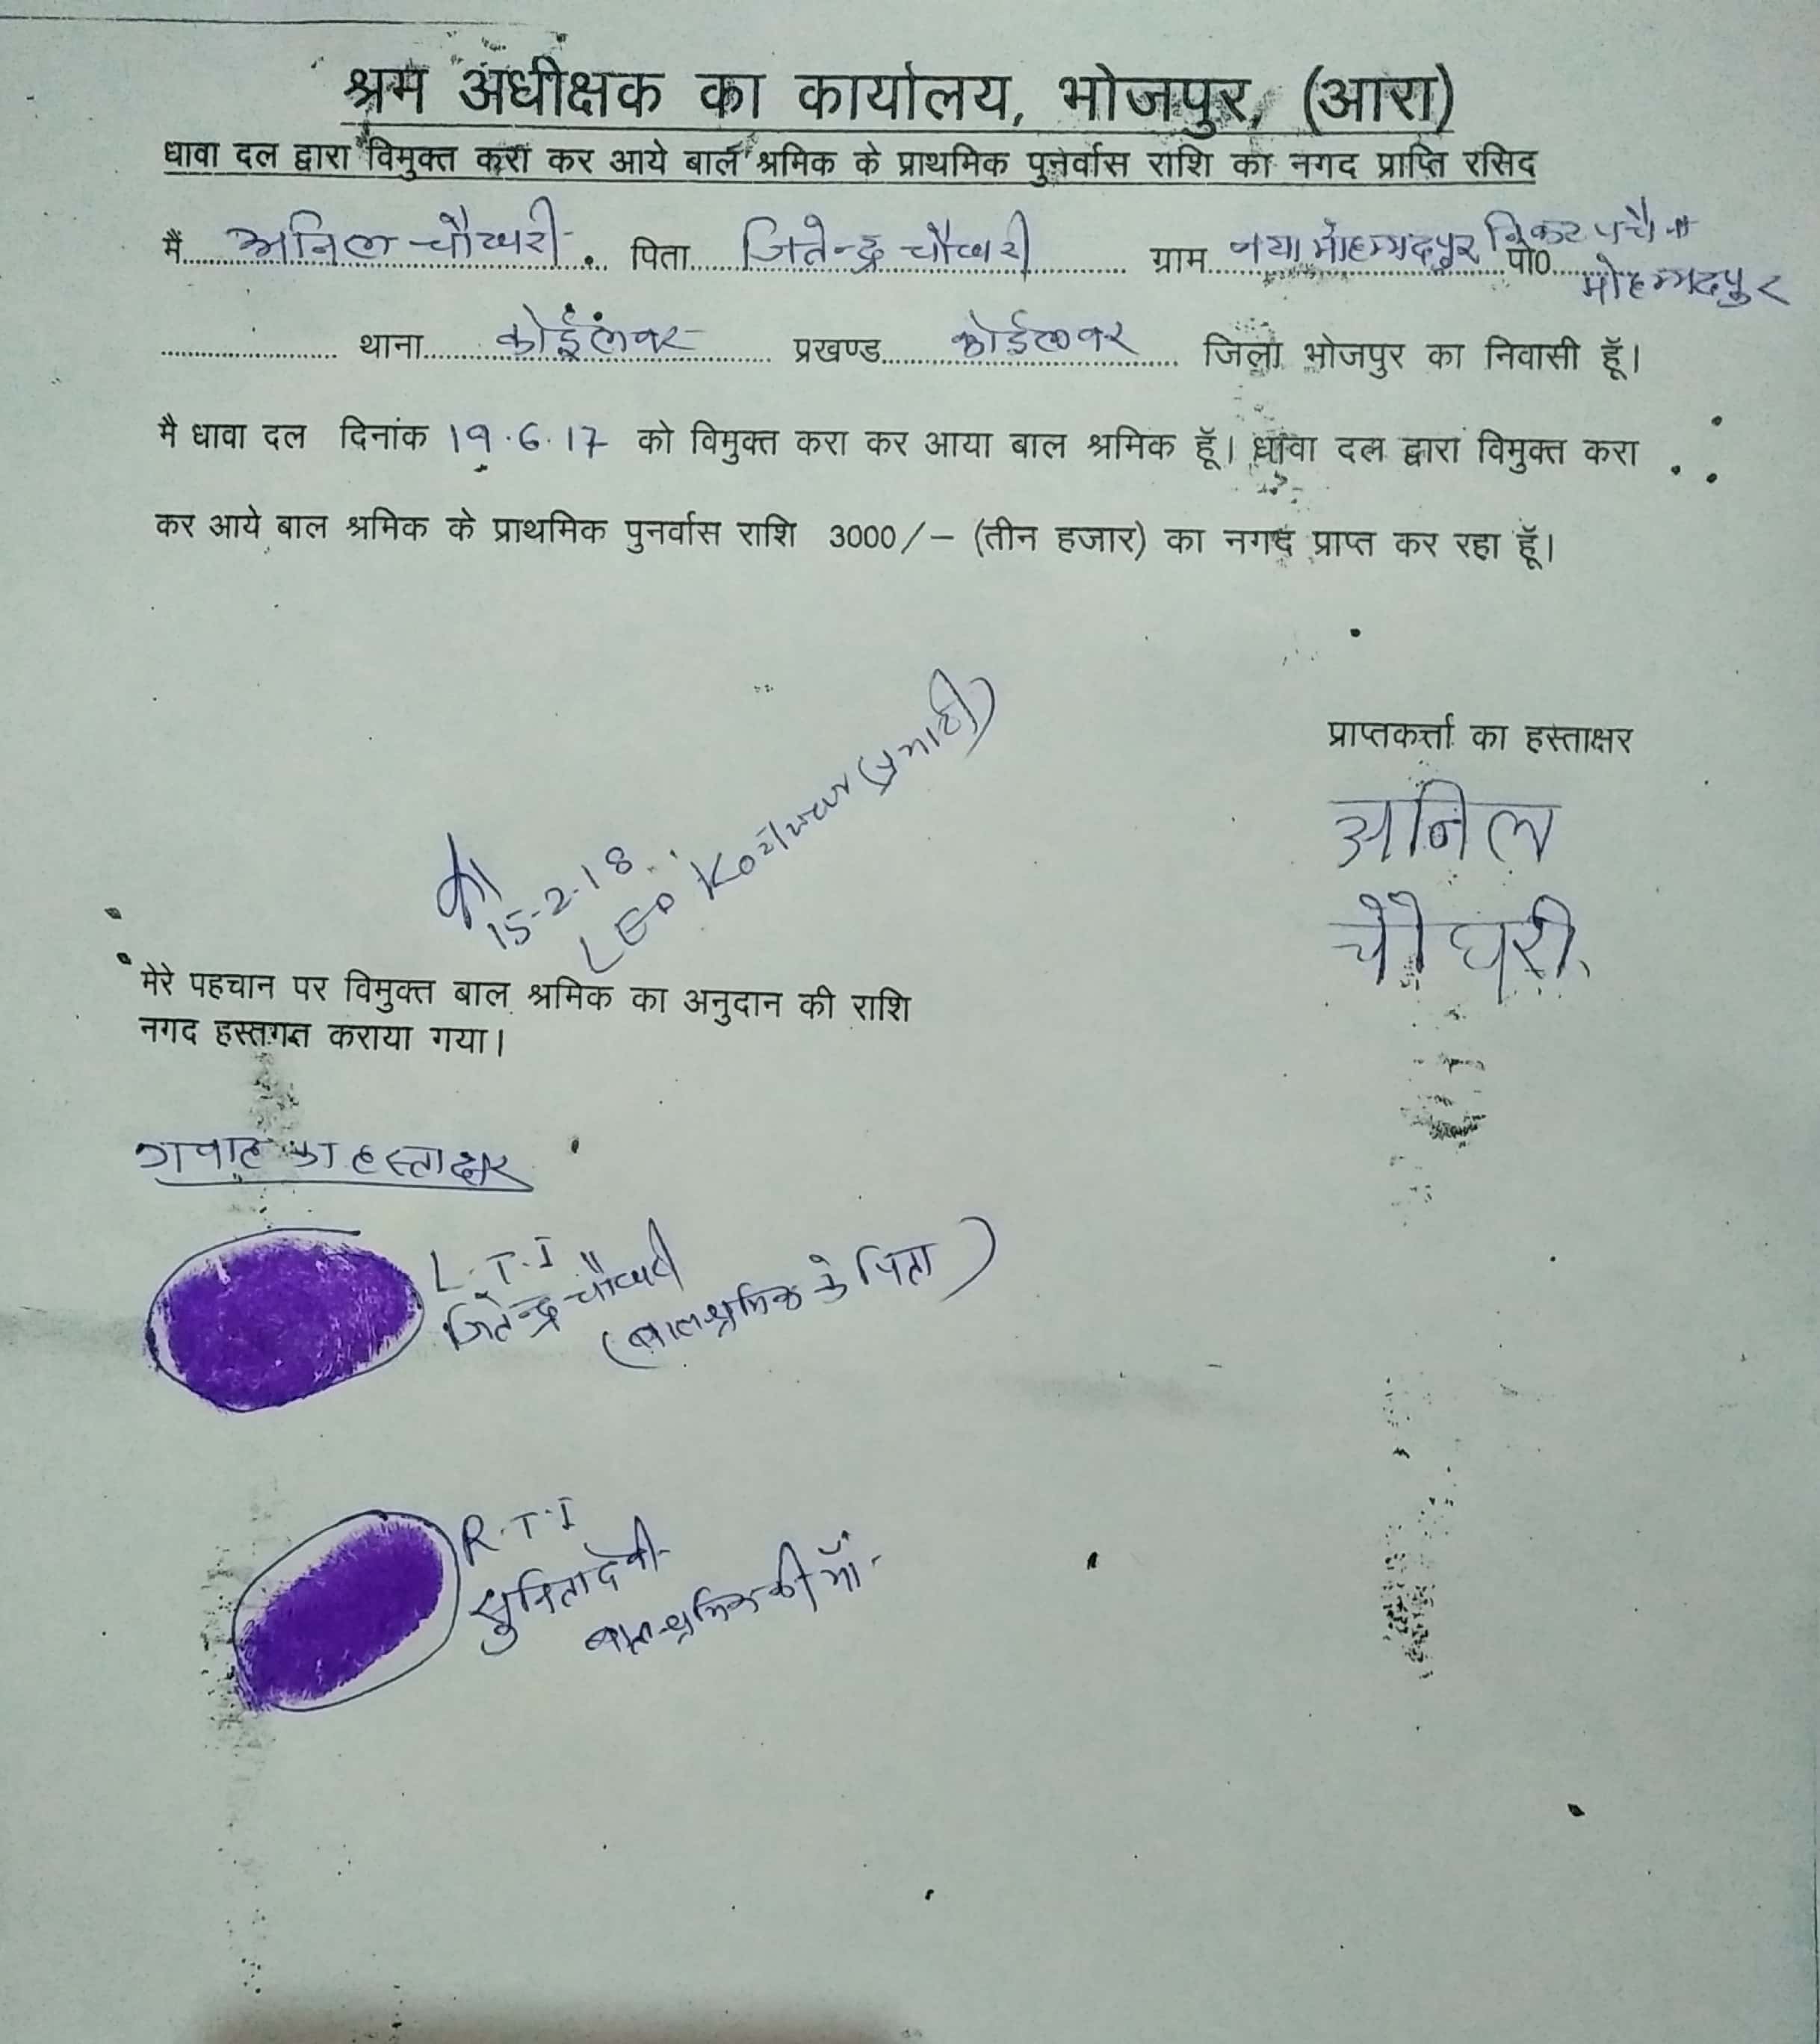 श्रम अधीक्षक का कार्यालय, भोजपुर, (आरा)
धावा दल द्वारा विमुक्त करा कर आये बाल श्रमिक के प्राथमिक पुनर्वास राशि का नगद प्राप्ति रसिद
मैं अनिल चौधरी पिता जितेन्द्र चौधरी ग्राम नया मोहम्मदपुर निकट पो0 मोहम्मदपुर
थाना कोईलवर प्रखण्ड कोईलवर जिला भोजपुर का निवासी हूँ।
मै धावा दल दिनांक 19.6.17 को विमुक्त करा कर आया बाल श्रमिक हूँ। धावा दल द्वारा विमुक्त करा
कर आये बाल श्रमिक के प्राथमिक पुनर्वास राशि 3000/– (तीन हजार) का नगद प्राप्त कर रहा हूँ।
प्राप्तकर्त्ता का हस्ताक्षर
अनिल
चौधरी
15-2-18
LEO (प्रभारी)
मेरे पहचान पर विमुक्त बाल श्रमिक का अनुदान की राशि
नगद हस्तगत कराया गया।
गवाह का हस्ताक्षर
L.T.I
जितेन्द्र चौधरी
(बाल श्रमिक के पिता)
R.T.I
सुनिता देवी
बाल श्रमिक की माँ